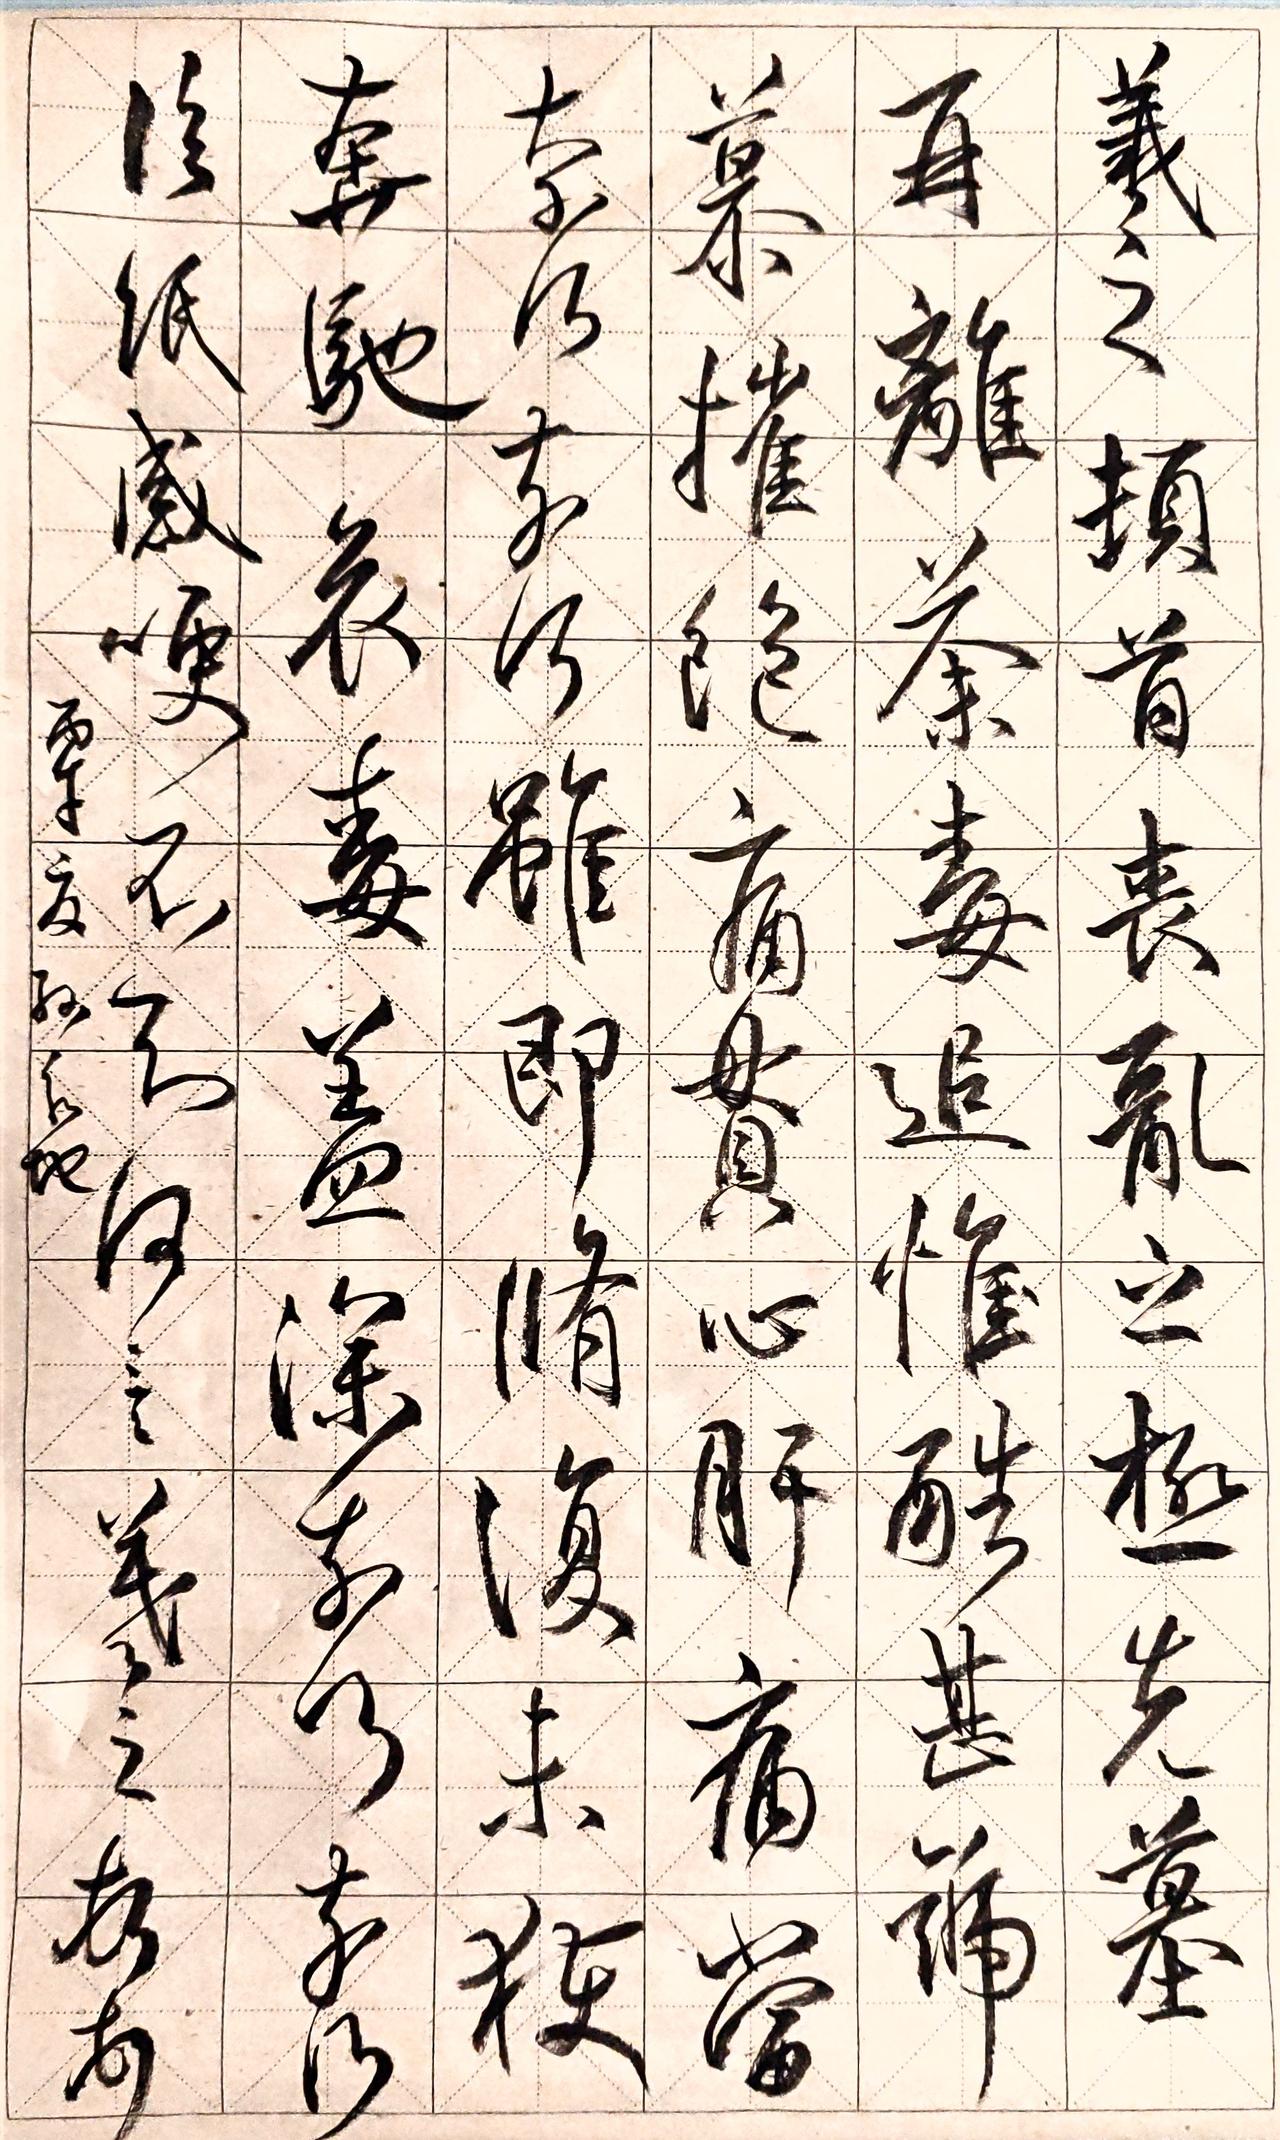 羲之頓首喪亂之極先墓
再離荼毒追惟酷甚號
慕摧絕痛貫心肝痛當
奈何奈何雖即脩復未獲
奔馳哀毒益深奈何奈何
臨紙感哽不知何言羲之頓首